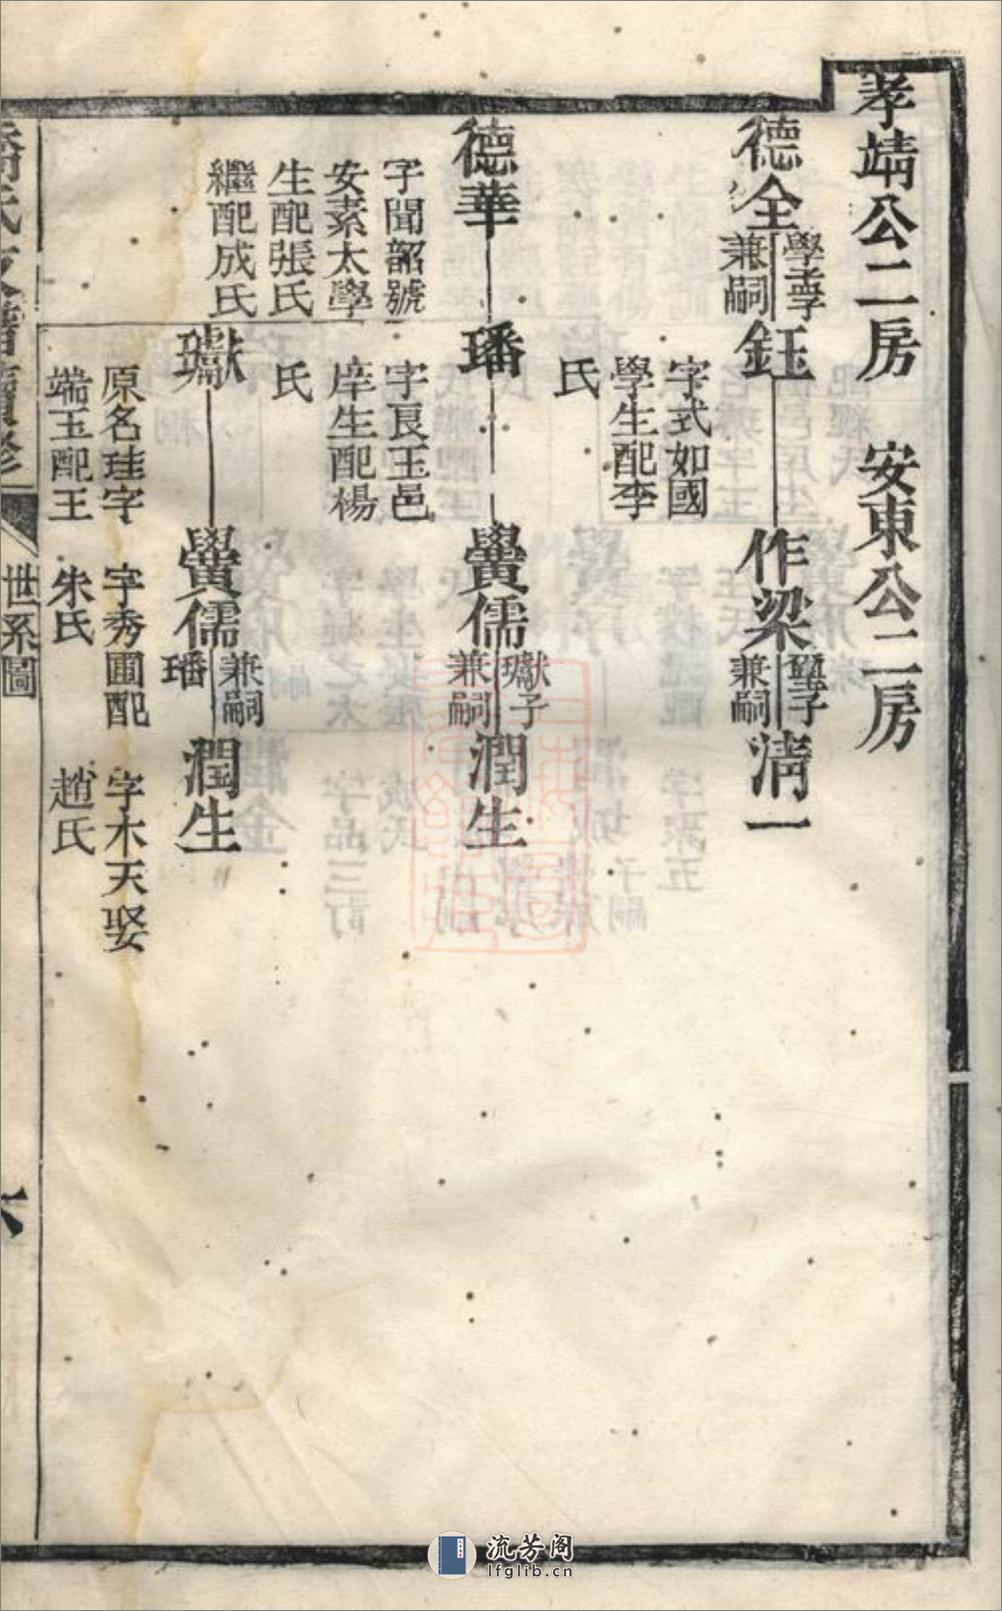 孝靖公二房 安東公二房
德全
兼嗣
鈺
字式如國
學生配李
氏
作梁
兼嗣
清一
德華
字聞韶號
安素太學
生配張氏
繼配成氏
璠
字良玉邑
庠生配楊
氏
黌儒
瓛子
兼嗣
潤生
瓛
原名珪字
端玉配王
朱氏
黌儒
兼嗣
璠
字秀圃配
潤生
字木天娶
趙氏
世系圖
六
流芳阁
lfglib.cn